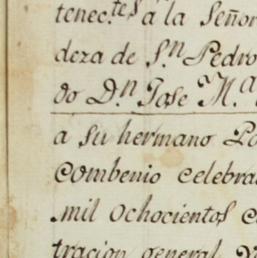 tenec.tes á la Señor
deza de S.n Pedro
do D.n Jose M.a
a su hermano Pe
Combenio celebra
mil ochocientos c
tracion general y